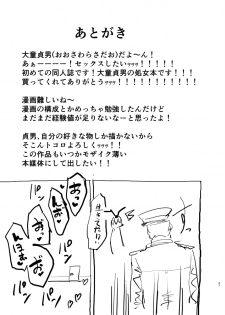 あとがき
大童貞男(おおさわらさだお)だよ～ん!
あぁーーーー!セックスしたいッッッッ!!!!!
初めての同人誌です!大童貞男の処女本です!!!!
買ってくれてありがとうッッッ!!!!!
漫画難しいね～
漫画の構成とかめっちゃ勉強したんだけど
まだまだ経験値が足りないなーと思ったよ!
貞男、自分の好きな物しか描かないから
そこんトコロよろしくぅッッ!!!
この作品もいつかモザイク薄い
本媒体にして出したい!!
パン
パン
パン